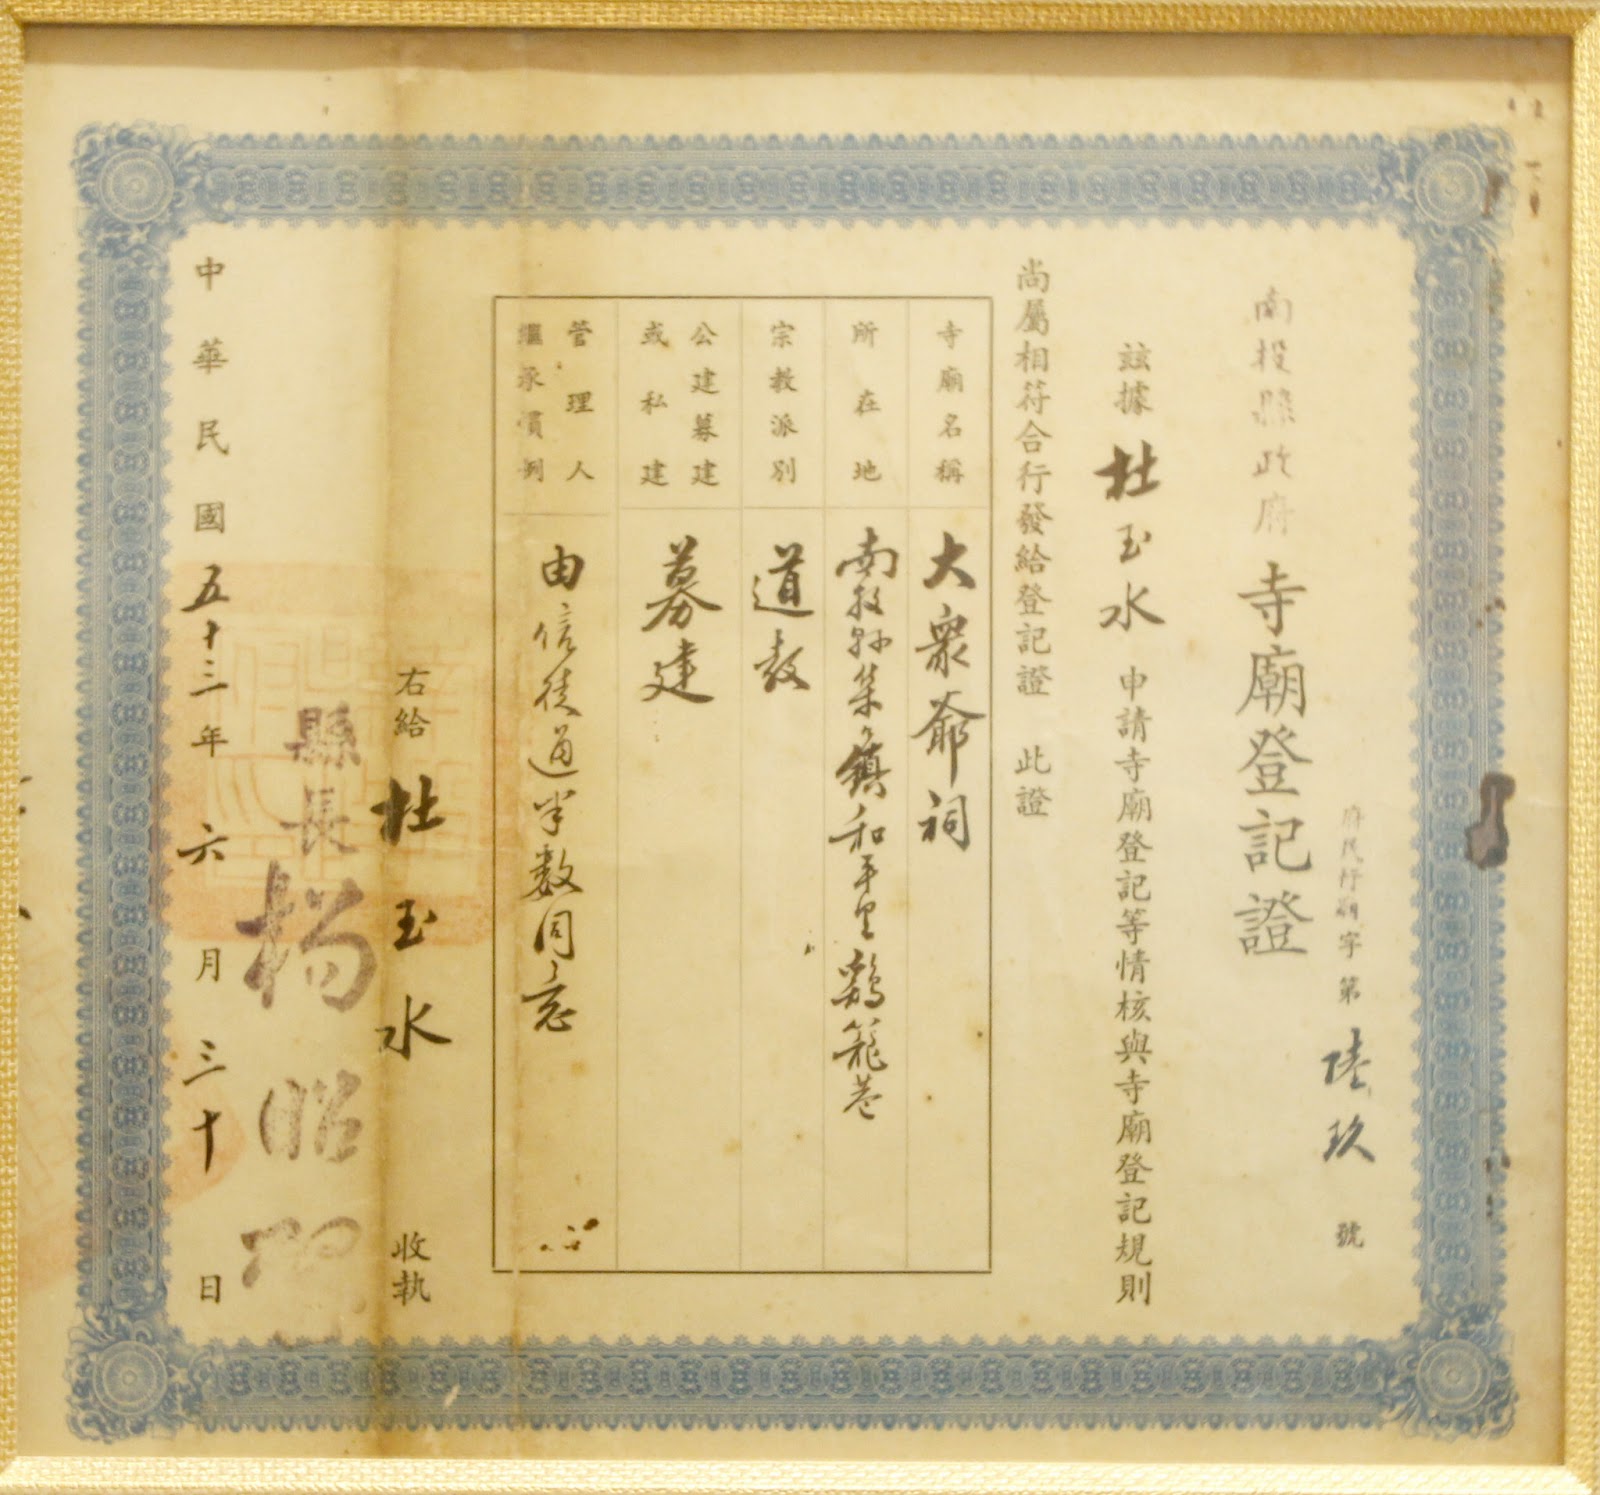 南投縣政府寺廟登記證
府民行字第陸玖號
茲據杜玉水申請寺廟登記等情核與寺廟登記規則
尚屬相符合行發給登記證 此證
寺廟名稱 大衆爺祠
所在地 南投縣集集鎮和平里鷄籠巷
宗教派別 道教
公建募建
或私建 募建
管理人
繼承慣例 由信徒過半数同意
右給杜玉水收執
縣長楊昭璧
中華民國五十三年六月三十日